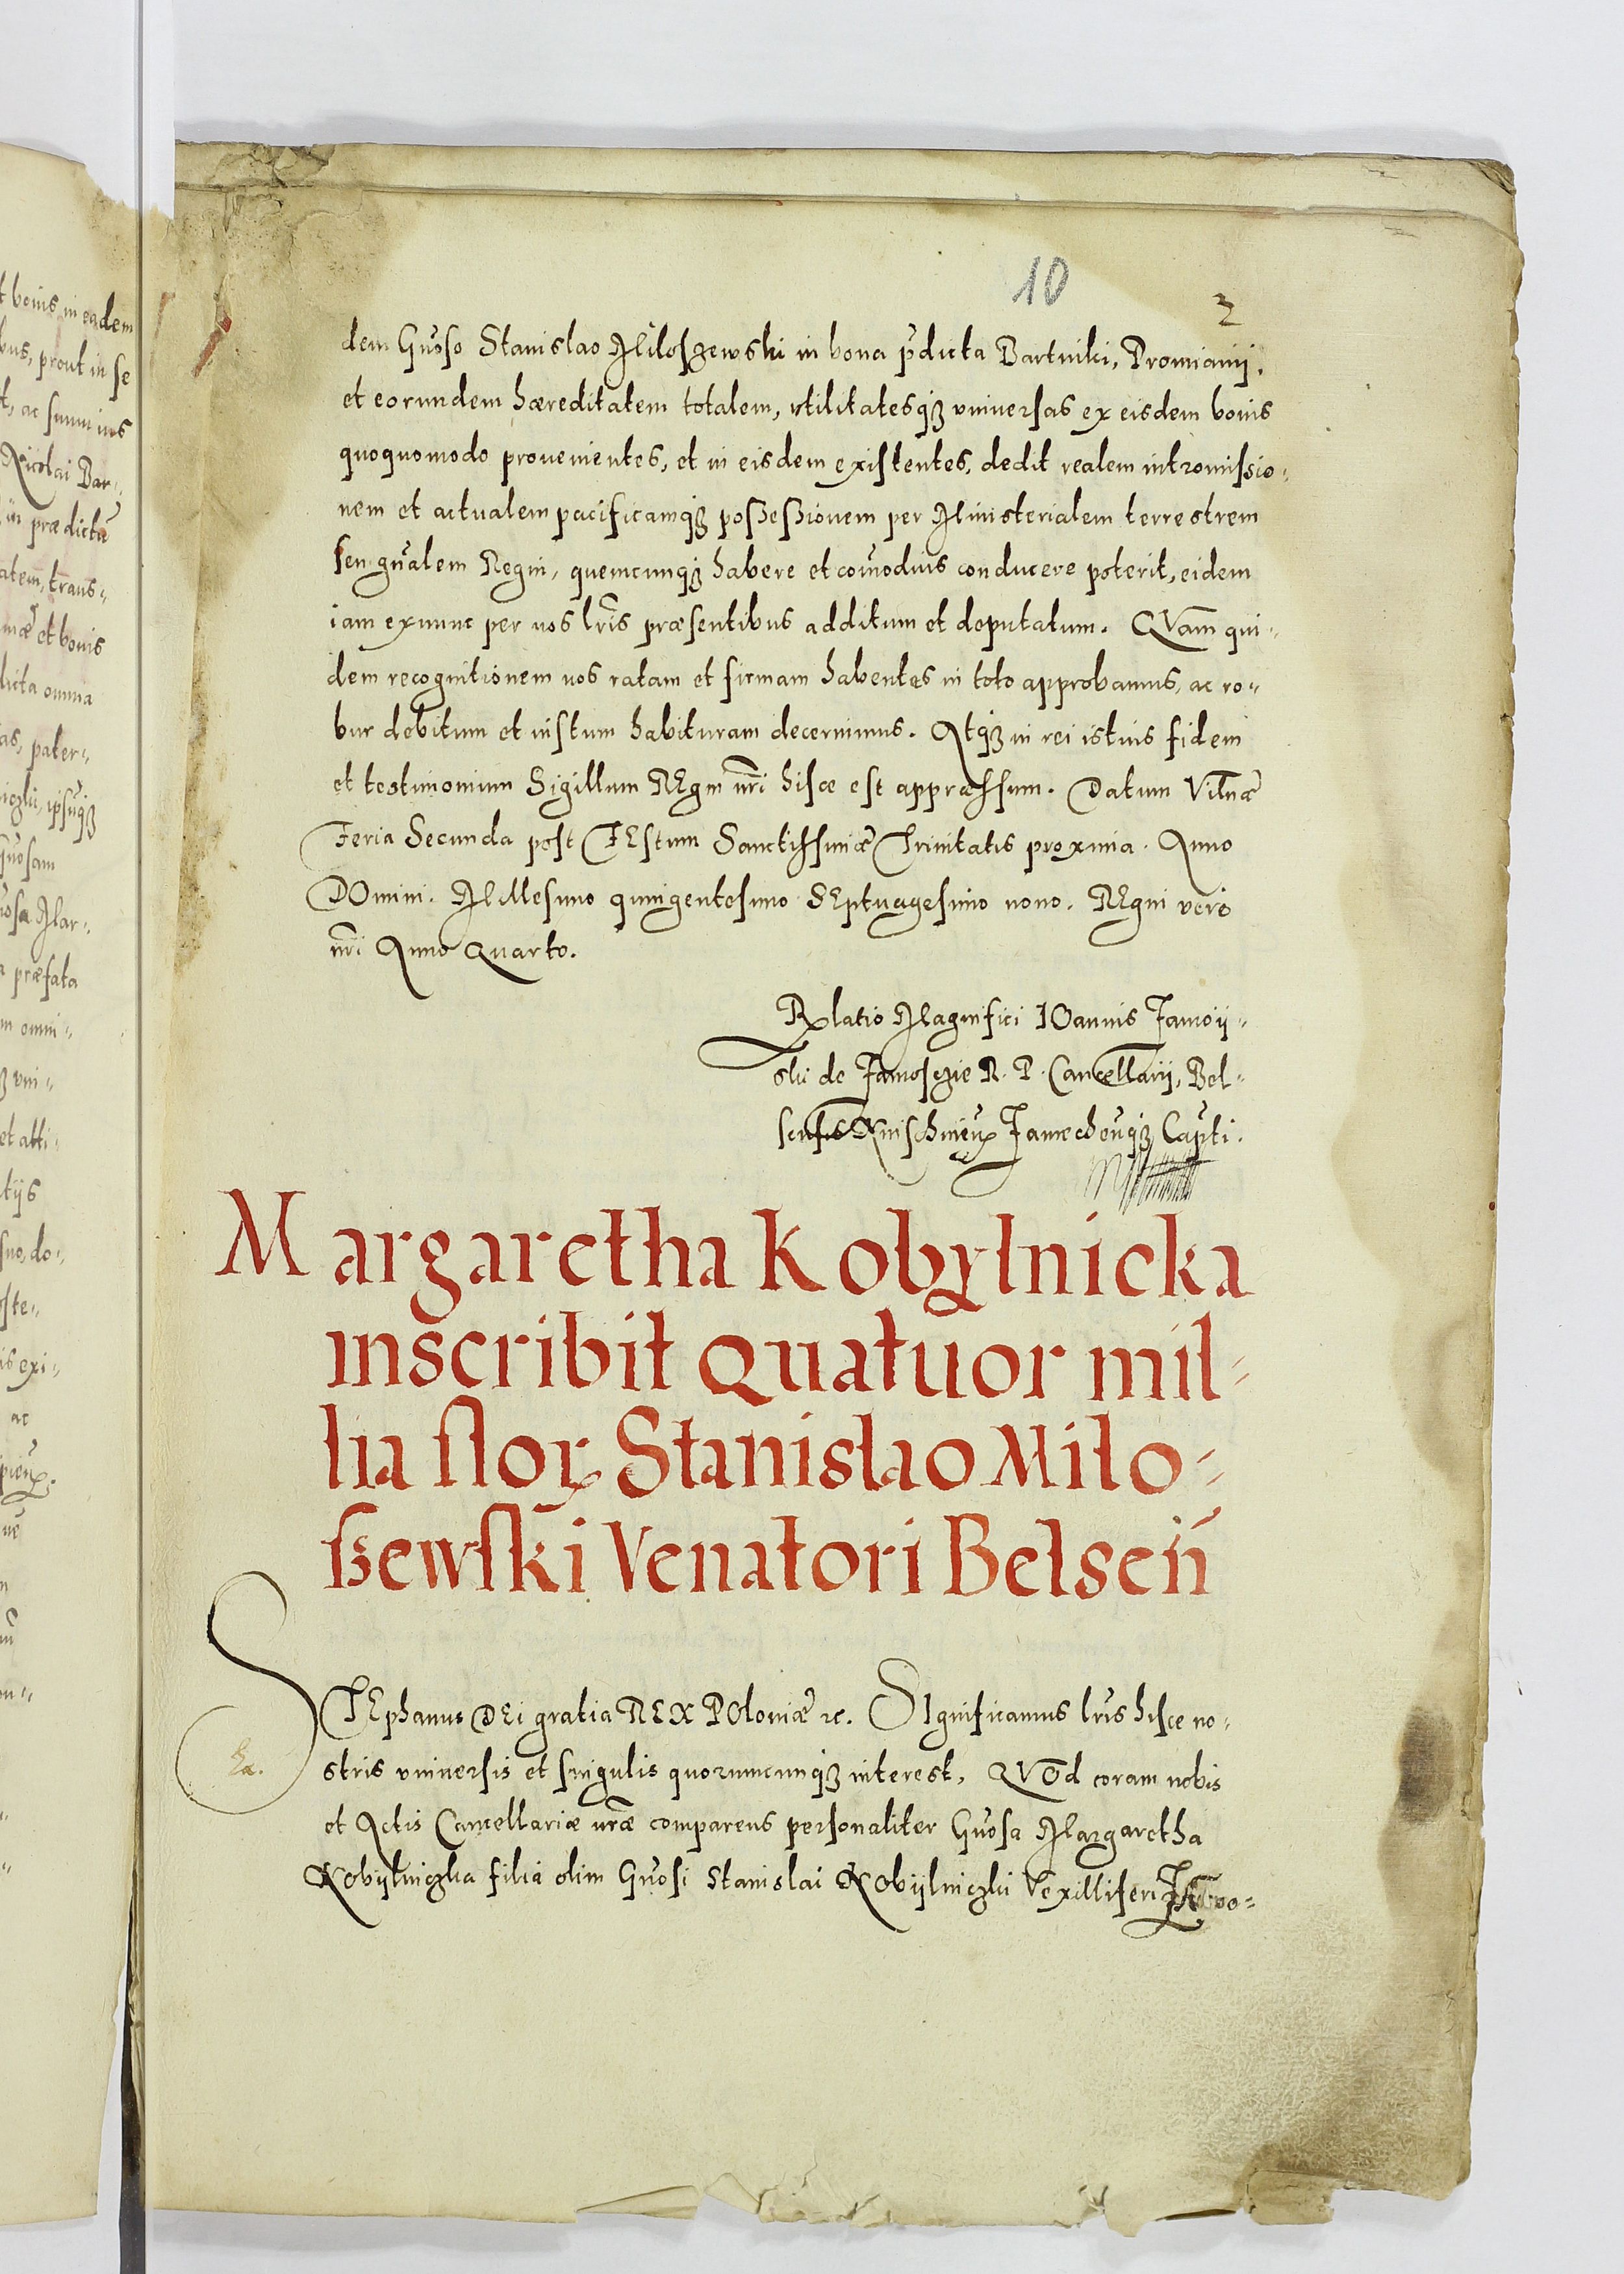 10
2
dem Gnoso Stanislao Miloszewski in bona pdicta Bartniki, Promianij,
et eorundem hæreditatem totalem, vtilitatesq3 vniuersas ex eisdem bonis
quoquomodo prouenientes, et in eisdem existentes, dedit realem intromissio-
nem et actualem pacificamq3 possessionem per Ministerialem terrestrem
seu gnalem Regni, quemcunq3 habere et comodius conducere poterit, eidem
iam exnunc per nos lris præsentibus additum et deputatum. QVam qui-
dem recognitionem nos ratam et firmam habentes in toto approbamus, ac ro-
bur debitum et iustum habituram decernimus. Atq3 in rei istius fidem
et testimonium Sigillum REgni nri hisce est appræssum. Datum Vilnæ
Feria Secunda post FEstum Sanctissimæ Trinitatis proxima. Anno
DOmini. Millesimo quingentesimo SEptuagesimo nono. REgni vero
nri Anno Quarto.
Relatio Magnifici IOannis Zamoij-
ski de Zamosczie R. P. Cancellarij, Bel-
sensis Knischineñ Zamechenq3 Capti.
Margaretha Kobylnicka
inscribit Quatuor mil-
lia flor Stanislao Milo-
szewski Venatori Belseñ
STEphanus DEi gratia REX POloniæ etc. SIgnificamus lris hisce no-
stris vniuersis et singulis quorumcunq3 interest, QVOd coram nobis
et Actis Cancellariæ nræ comparens personaliter Gnosa Margaretha
Kobijlniczka filia olim Gnosi Stanislai Kobijlniczki Vexilliferi